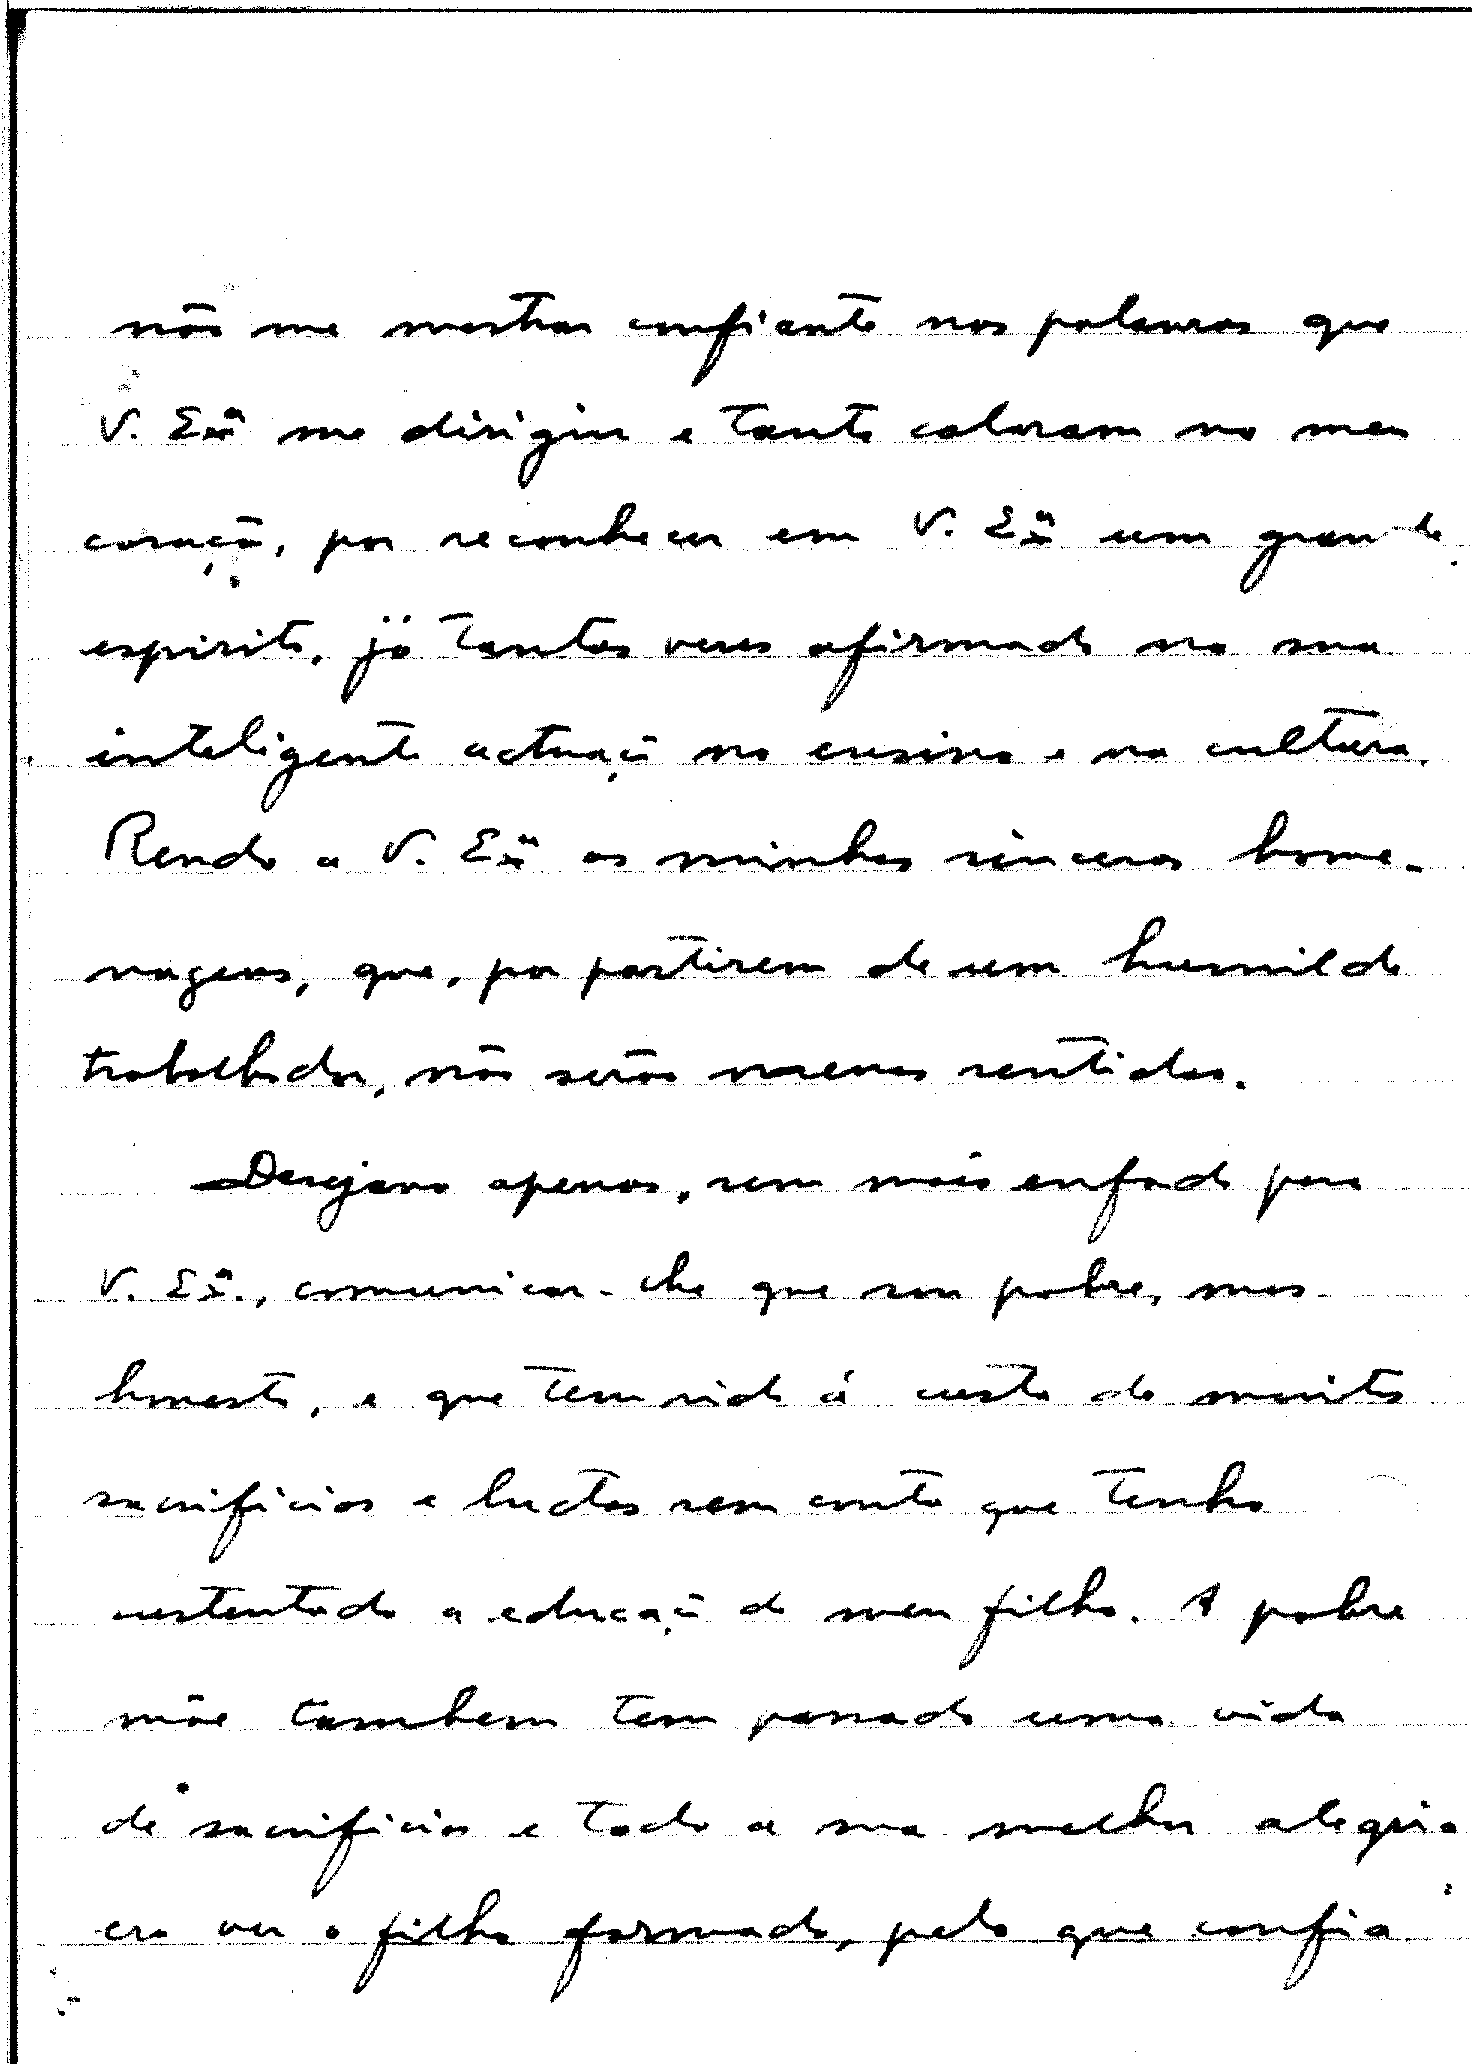 não me mostrar confiante nas palavras que
V. Exª me dirigiu e tanto calaram no meu
coração, por reconhecer em V. Exª um grande
espirito, já tantas vezes afirmado na sua
inteligente actuação no ensino e na cultura.
Rendo a V. Exª as minhas sinceras home-
nagens, que, por partirem de um humilde
trabalhador, não serão menos sentidas.
Desejava apenas, sem mais enfado para
V. Exª., comunicar-lhe que sou pobre, mas
honesto, e que tem sido á custa de muitos
sacrificios e luctas sem conto que tenho
sustentado a educação de meu filho. A pobre
mãe tambem tem passado uma vida
de sacrificios e toda a sua melhor alegria
era ver o filho formado, pelo que confia